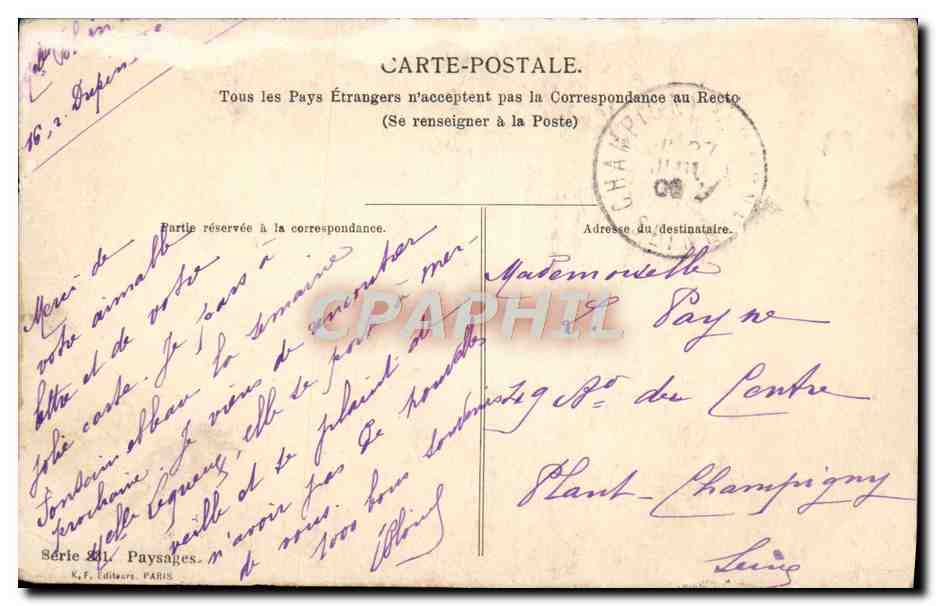 16, r. Dupin
CARTE-POSTALE.
Tous les Pays Étrangers n'acceptent pas la Correspondance au Recto
(Se renseigner à la Poste)
CHAMPIGNY
27
06
SEINE
Partie réservée à la correspondance.
Adresse du destinataire.
Merci de
votre aimable
lettre et de votre
jolie carte. Je pars à
Fontainebleau la semaine
prochaine. Je viens de rencontrer
Melle elle se porte à mer-
veille et se plaint de
n'avoir pas de nouvelles
de vous.
1000 bons souvenirs
Mademoiselle
Payne
49 Av. du Centre
Plant-Champigny
Seine
CPAPHIL
Série 331. Paysages.
K. F. Editeurs. PARIS